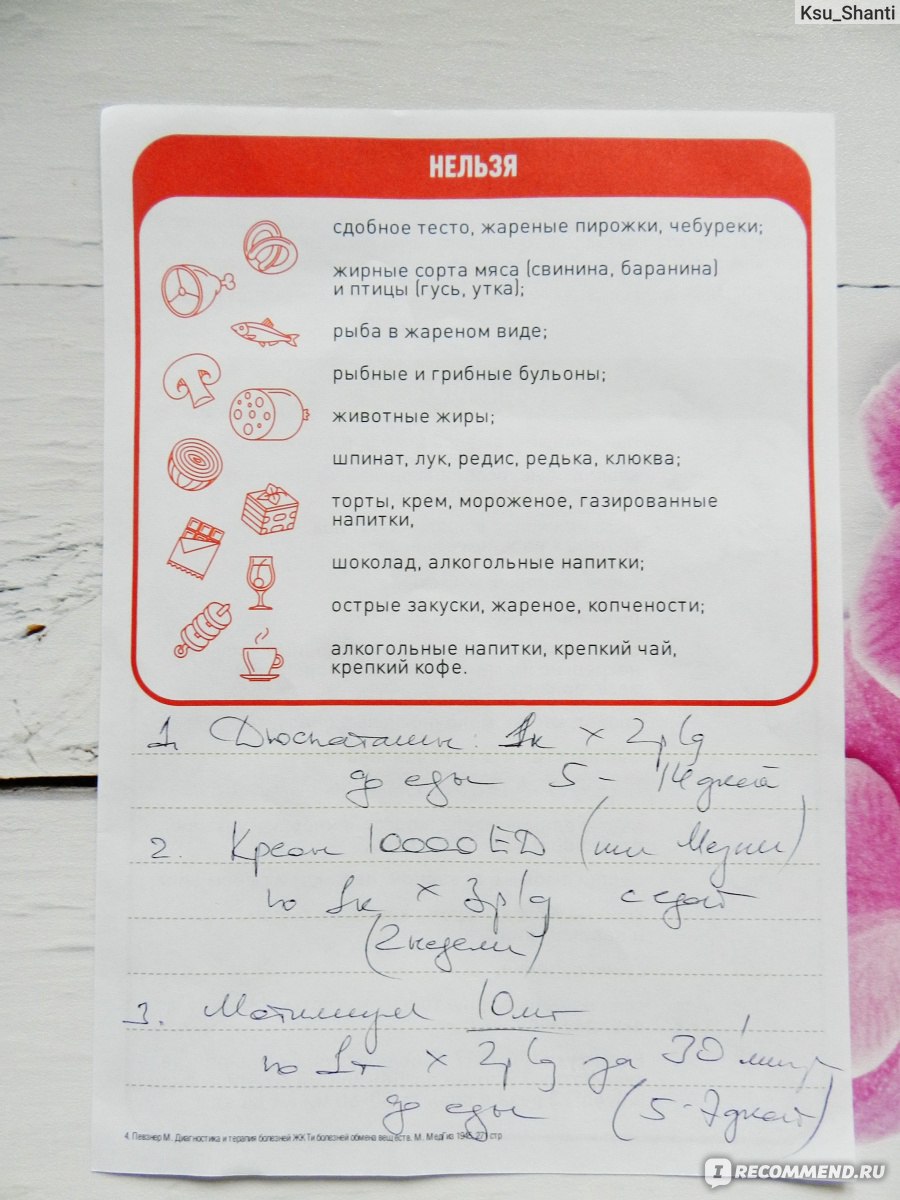 Ksu_Shanti
НЕЛЬЗЯ
сдобное тесто, жареные пирожки, чебуреки;
жирные сорта мяса (свинина, баранина)
и птицы (гусь, утка);
рыба в жареном виде;
рыбные и грибные бульоны;
животные жиры;
шпинат, лук, редис, редька, клюква;
торты, крем, мороженое, газированные
напитки,
шоколад, алкогольные напитки;
острые закуски, жареное, копчености;
алкогольные напитки, крепкий чай,
крепкий кофе.
1. Дюспаталин: 1к х 2р/д
до еды 5 - 14 дней
2. Креон 10000 ЕД (или Мезим)
по 1к х 3р/д с едой
(2 недели)
3. Мотилиум 10мг
по 1т х 2р/д за 30 минут
до еды (5-7 дней)
4. Певзнер М. Диагностика и терапия болезней ЖКТ и болезней обмена веществ. М. Медгиз 1945, 271 стр
IRECOMMEND.RU